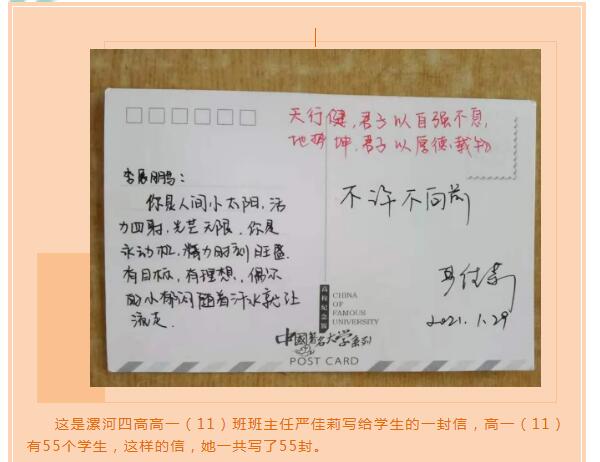 天行健,君子以自强不息,
地势坤,君子以厚德载物
你是人间小太阳,活
力四射,光芒无限.你是
永动机,精力时刻旺盛.
有目标,有理想,偶尔
的小郁闷随着汗水就让
流走.
不许不向前
严佳莉
2021.1.29
高校纪念版
CHINA
OF
FAMOUS
UNIVERSITY
中國著名大学系列
POST CARD
这是漯河四高高一（11）班班主任严佳莉写给学生的一封信，高一（11）
有55个学生，这样的信，她一共写了55封。